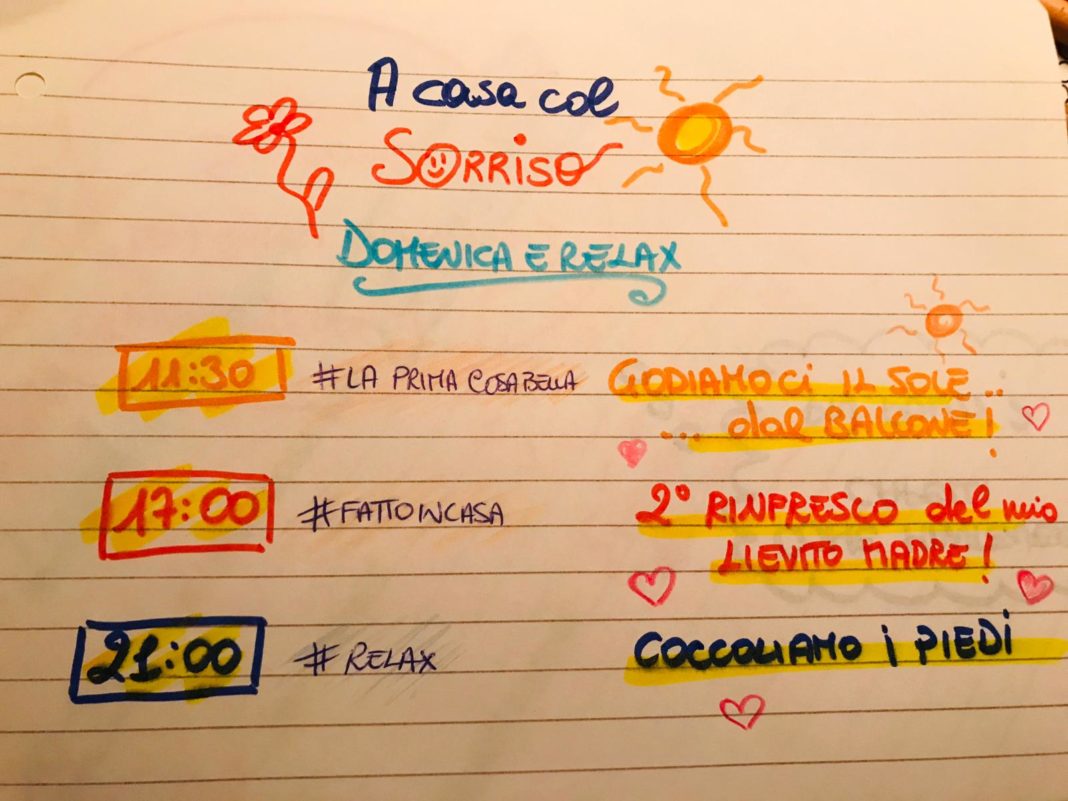 A casa col
SORRISO
DOMENICA E RELAX
11:30 #LA PRIMA COSA BELLA GODIAMOCI IL SOLE..
... dal BALCONE!
17:00 #FATTOINCASA 2° RINFRESCO del mio
LIEVITO MADRE!
21:00 #RELAX COCCOLIAMO i PIEDI